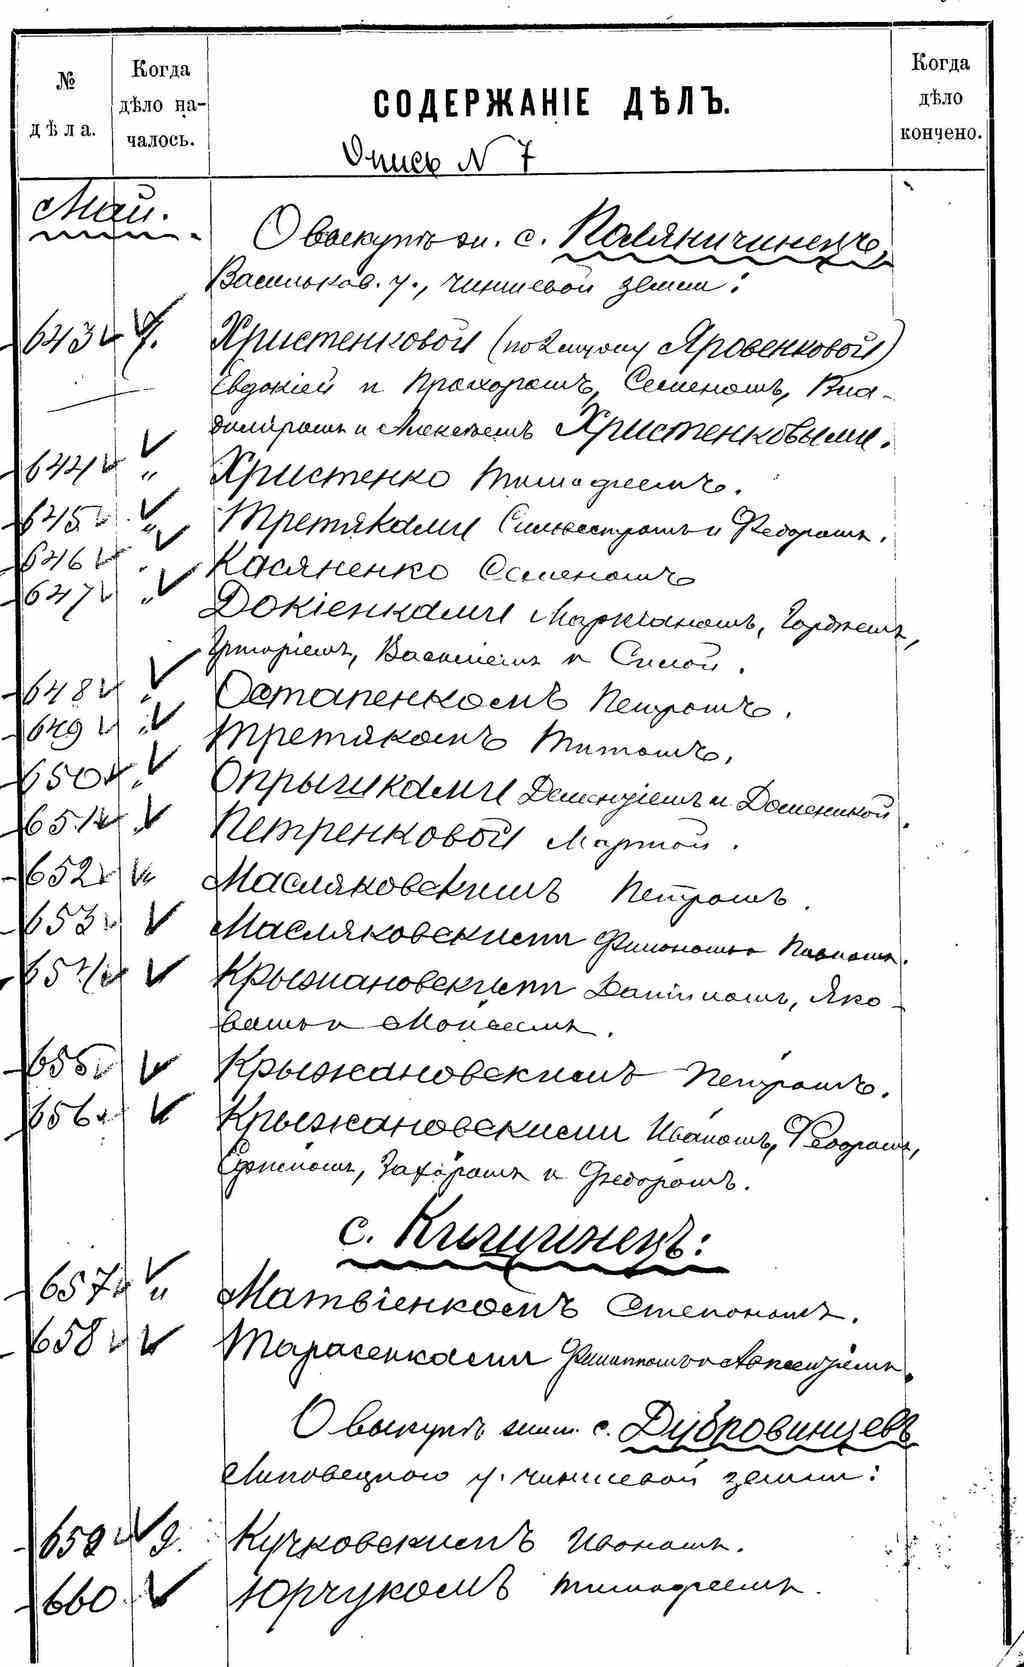 № дѣла.
Когда дѣло на-чалось.
СОДЕРЖАНІЕ ДѢЛЪ.
Когда дѣло кончено.
Опись N 7
Май.
О выкупѣ жи. с. Поляничинецъ,
Васильков. у., чиншевой земли:
643 7. Христенковой (по 2 мужу Яровенковой)
Евдокіей и Прохоромъ, Семеномъ, Вла-
диміромъ и Алексѣемъ Христенковыми.
644 " Христенко Тимофеемъ.
645 " Третяками Сильвестромъ и Федоромъ.
646 " Касяненко Семеномъ
647 " Докіенками Маркіаномъ, Гордѣемъ,
Григоріемъ, Василіемъ и Силой.
648 " Остапенкомъ Петромъ.
649 " Третякомъ Титомъ.
650 " Опрышками Дементіемъ и Доминикой.
651 " Петренковой Марфой.
652 " Масляковскимъ Петромъ.
653 Масляковскими Филономъ и Павломъ.
654 Крыжановскими Даніиломъ, Яко-
вомъ и Моисеемъ.
655 Крыжановскимъ Петромъ.
656 Крыжановскими Иваномъ, Федоромъ,
Ефимомъ, Захаромъ и Федоромъ.
с. Кищинецъ:
657 " Матвіенкомъ Степаномъ.
658 Тарасенками Филиппомъ и Авксентіемъ.
О выкупѣ жит. с. Дубровинцевъ
Липовецкого у. чиншевой земли:
659 9. Кучковскимъ Иваномъ.
660 Юрчукомъ Тимофеемъ.